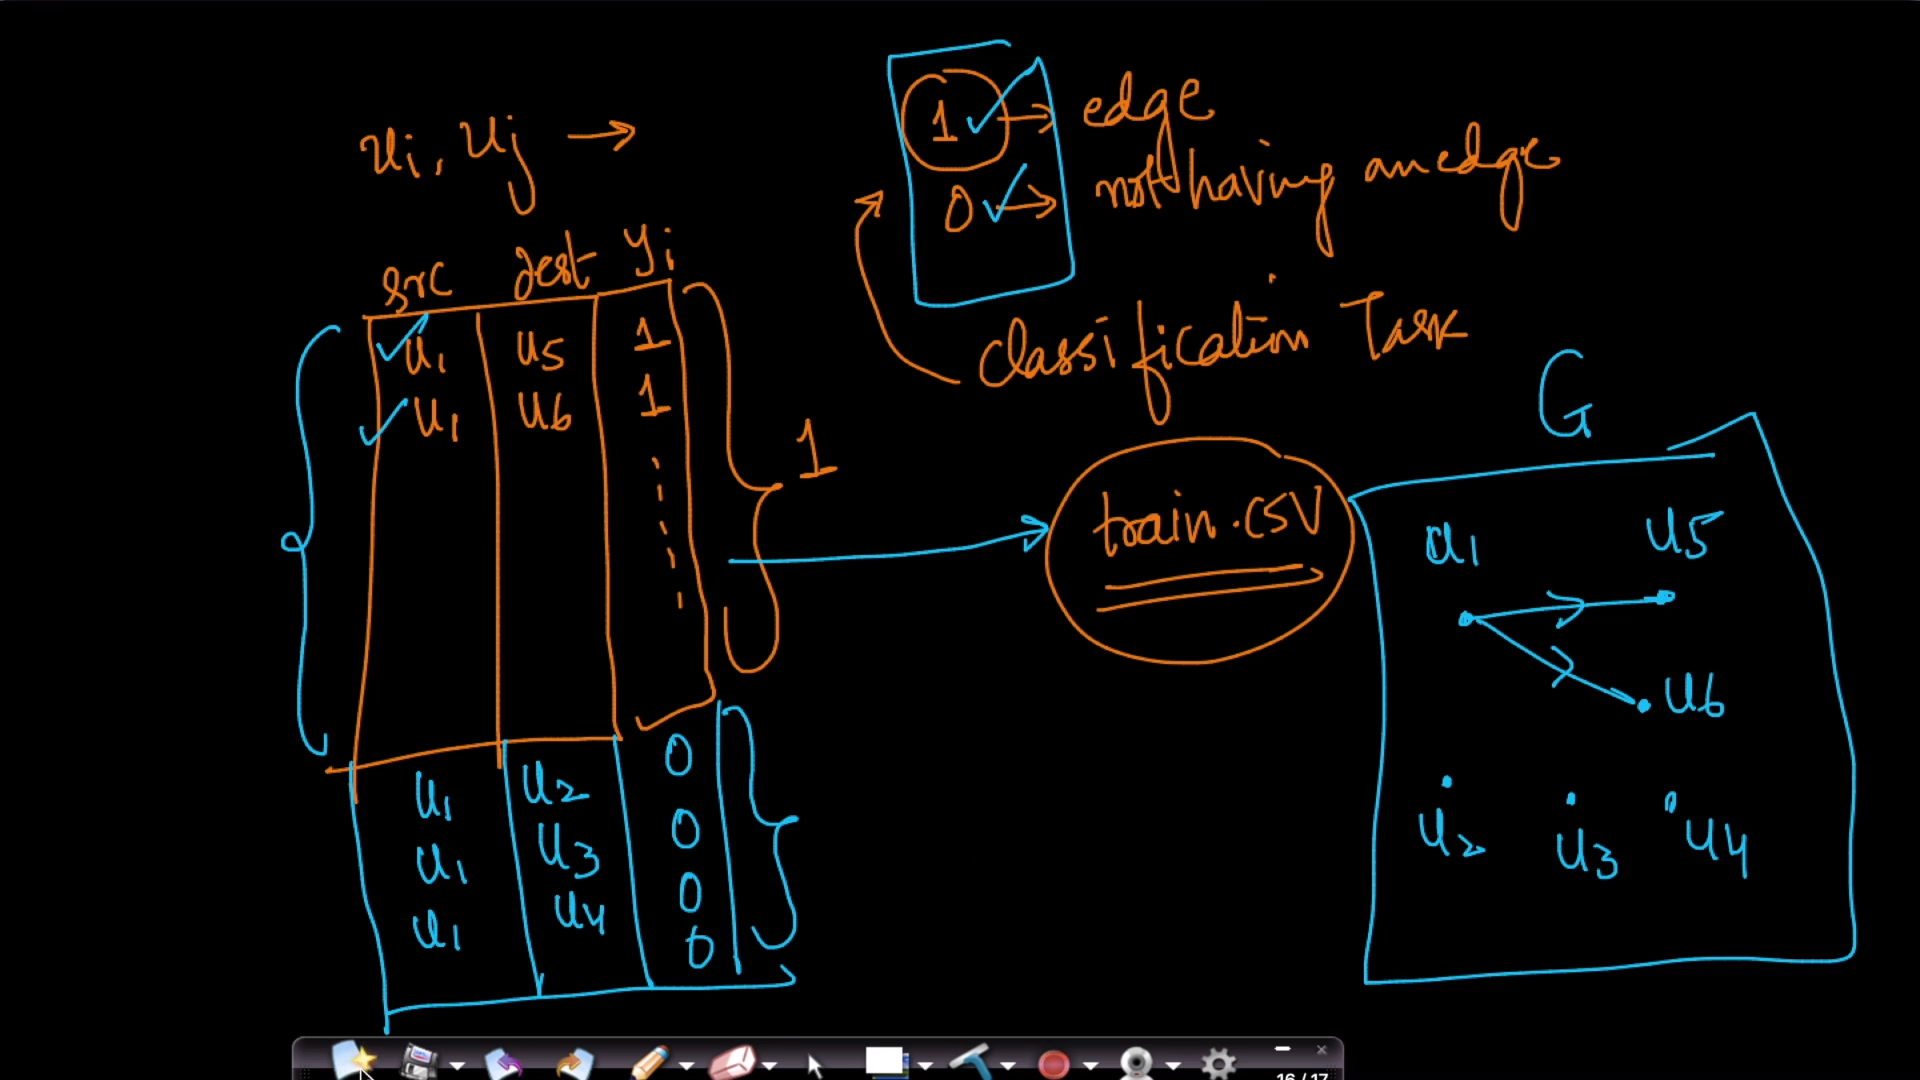 ui, uj →
1 → edge
0 → not having an edge
classification Task
src dest yi
u1 u5 1
u1 u6 1
1
u1 u2 0
u1 u3 0
u1 u4 0
0
train.csv
G
u1 u5
u6
u2 u3 u4
16/17